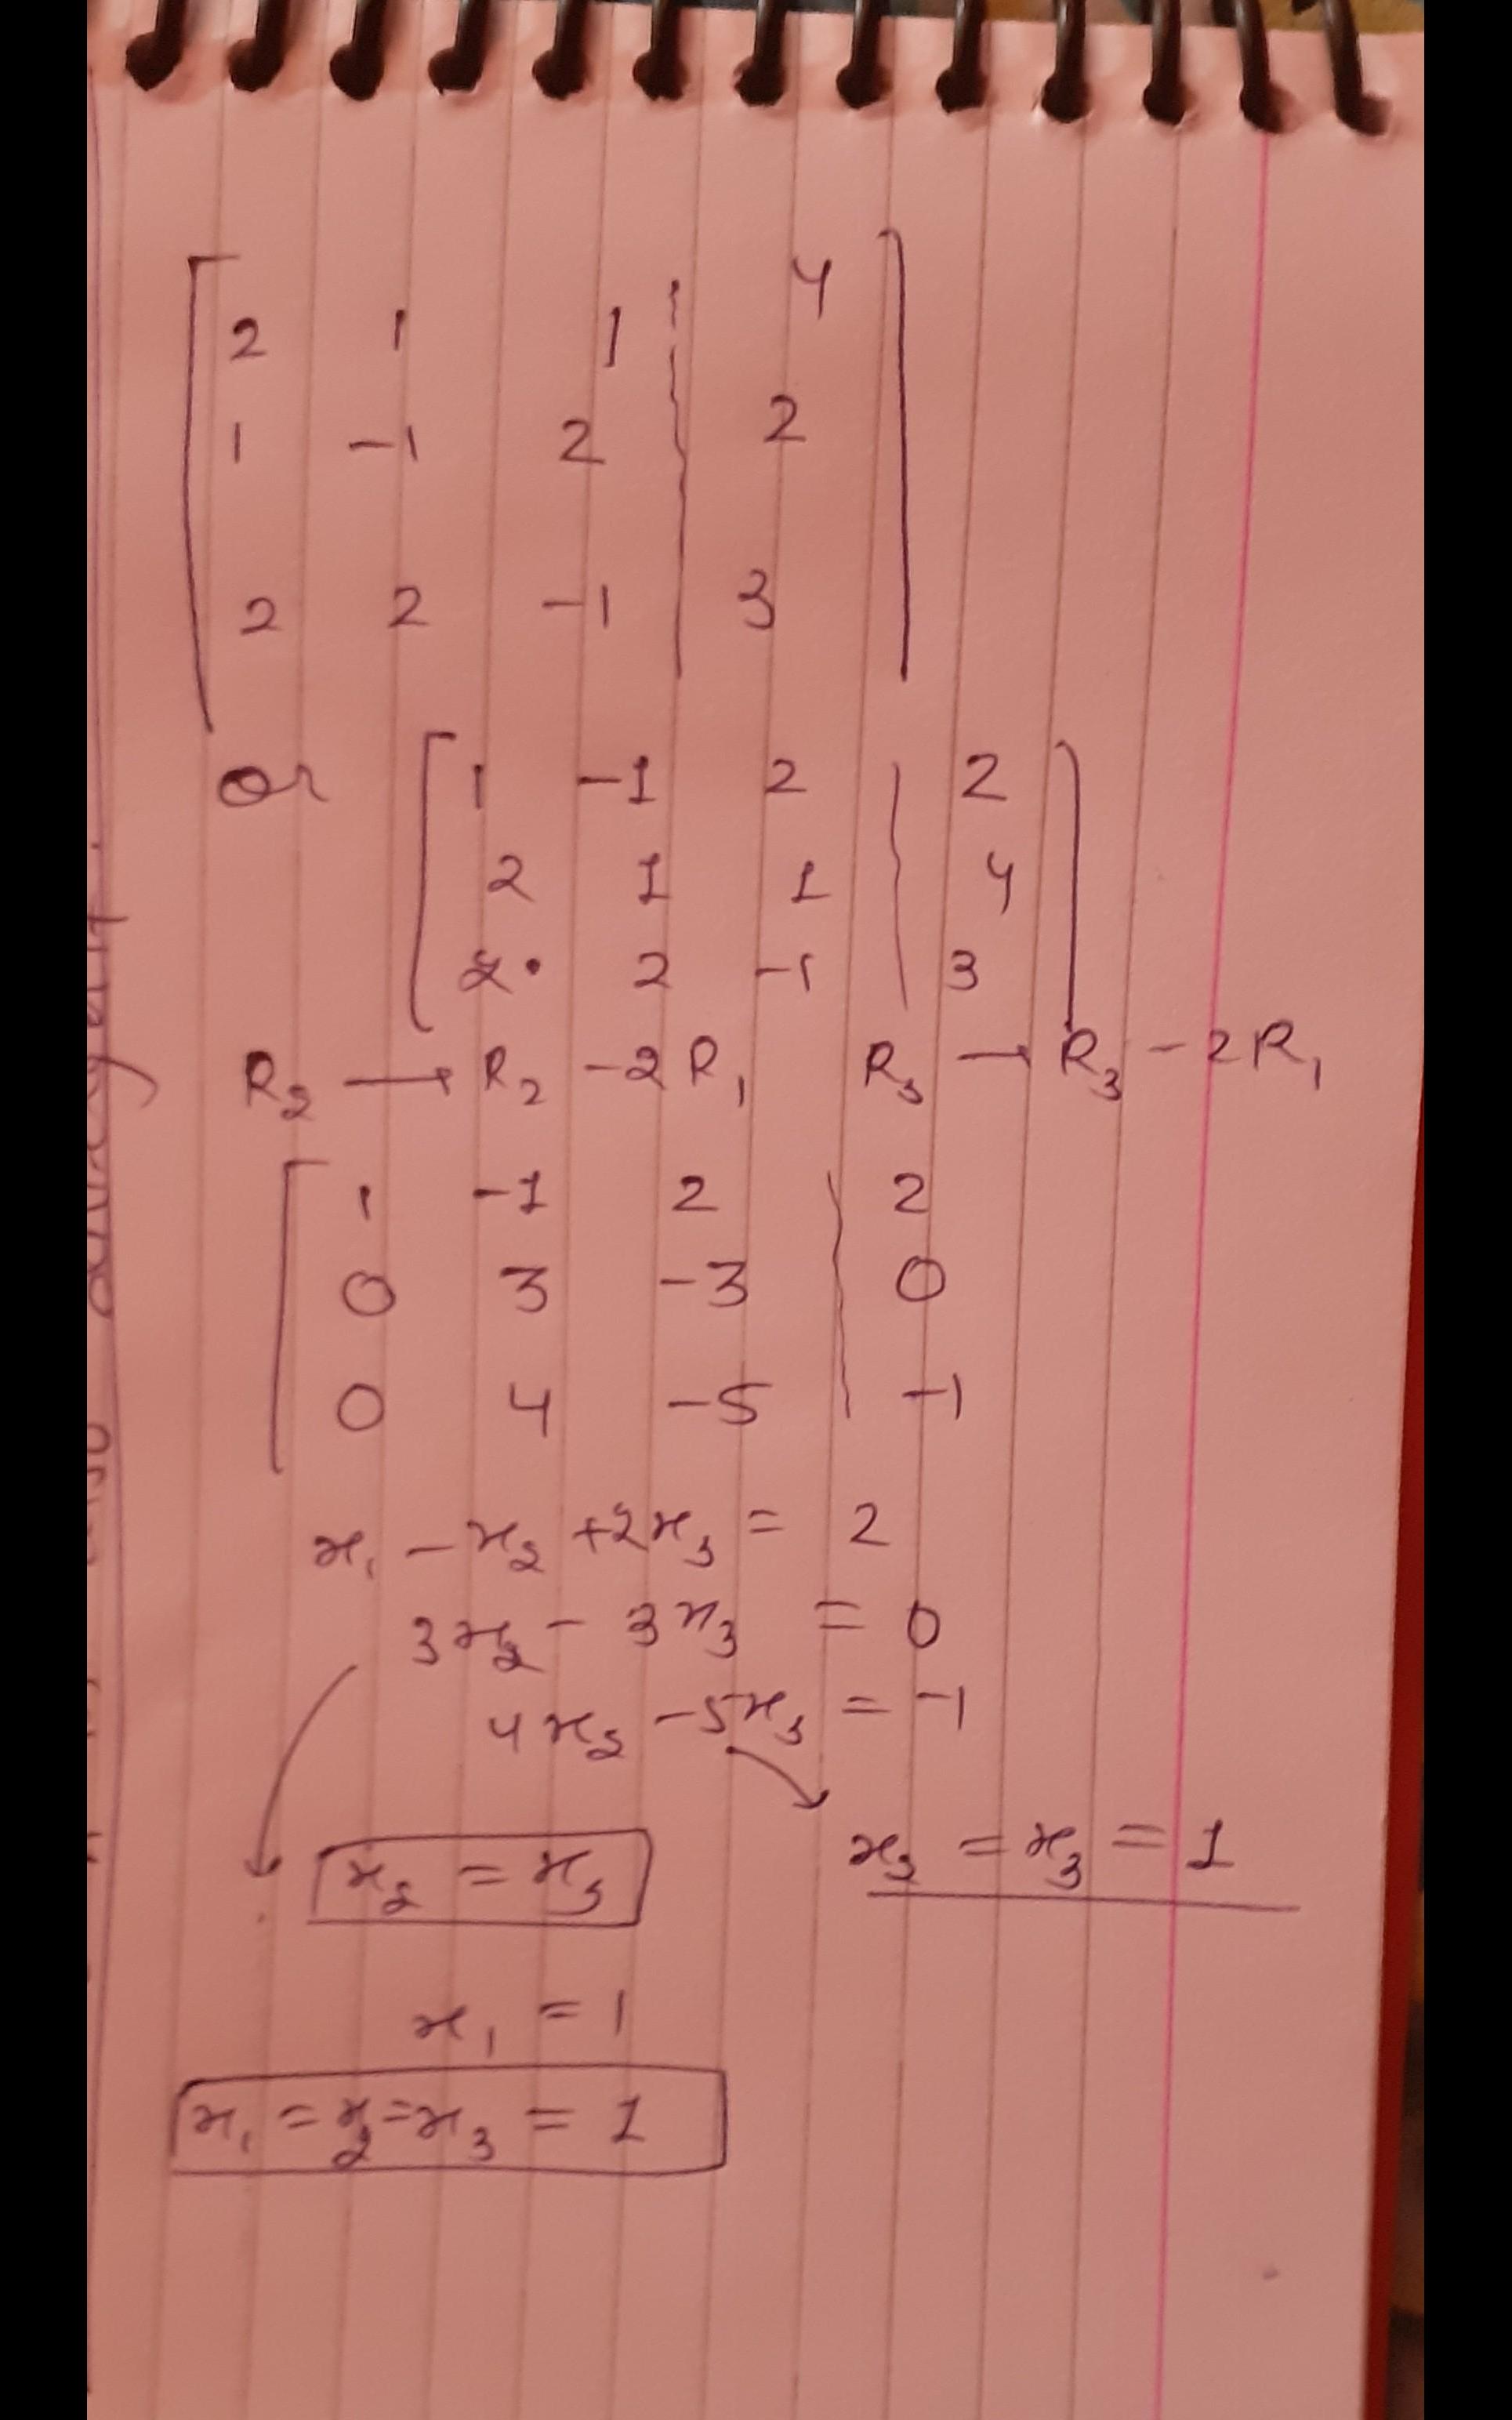 2 1 1 4
1 -1 2 2
2 2 -1 3
Or 1 -1 2 2
2 1 1 4
2 2 -1 3
R₂ → R₂ -2R₁ R₃ → R₃ -2R₁
1 -1 2 2
0 3 -3 0
0 4 -5 -1
x₁ - x₂ +2x₃ = 2
3x₂ - 3x₃ = 0
4x₂ -5x₃ = -1
x₂ = x₃
x₃ = x₃ = 1
x₁ = 1
x₁ = x₂ = x₃ = 1